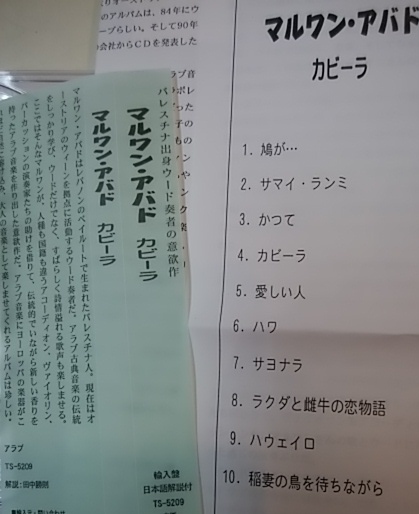 のアルバムは、84年にウ
ープらしい。そして90年
会社からCDを発表した
マルワン・アバド
カビーラ
1. 鳩が…
2. サマイ・ランミ
3. かつて
4. カビーラ
5. 愛しい人
6. ハワ
7. サヨナラ
8. ラクダと雌牛の恋物語
9. ハウェイロ
10. 稲妻の鳥を待ちながら
パレスチナ出身ウード奏者の意欲作
マルワン・アバド カビーラ
マルワン・アバド カビーラ
マルワン・アバドはレバノンのベイルートで生まれたパレスチナ人。現在はオ
ーストリアのウィーンを拠点に活動するウード奏者だ。アラブ古典音楽の伝統
をしっかり学び、ウードだけでなく、すばらしく詩情溢れる歌声も楽しませる。
ここではそんなマルワンが、人種も国籍も違うアコーディオン、ヴァイオリン、
パーカッションの演奏家たちの助けを借りて、伝統的でいながら新しい香りを
持ったアラブ音楽を作り出した意欲作だ。アラブ音楽にヨーロッパの楽器がこ
大人の音楽として楽しませてくれるアルバムは珍しい。
アラブ
TS-5209
解説：田中勝則
輸入盤
日本語解説付
TS-5209